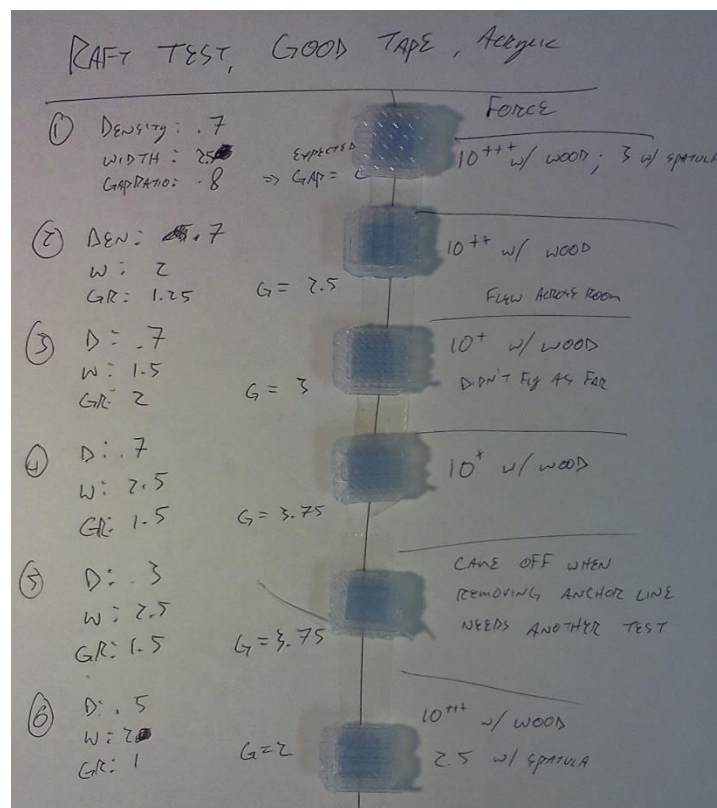 RAFT TEST, GOOD TAPE, Acrylic
FORCE
① DENSITY: .7
WIDTH: 2.5
GAPRATIO: .8 => EXPECTED GAP =
10+++ w/ WOOD; 3 w/ SPATULA
② DEN: .7
W: 2
GR: 1.25 G= 2.5
10++ w/ WOOD
FLEW ACROSS ROOM
③ D: .7
W: 1.5
GR: 2 G= 3
10+ w/ WOOD
DIDN'T FLY AS FAR
④ D: .7
W: 2.5
GR: 1.5 G= 3.75
10+ w/ WOOD
⑤ D: .3
W: 2.5
GR: 1.5 G= 3.75
CAME OFF WHEN
REMOVING ANCHOR LINE
NEEDS ANOTHER TEST
⑥ D: .5
W: 2
GR: 1 G=2
10+++ w/ WOOD
2.5 w/ SPATULA